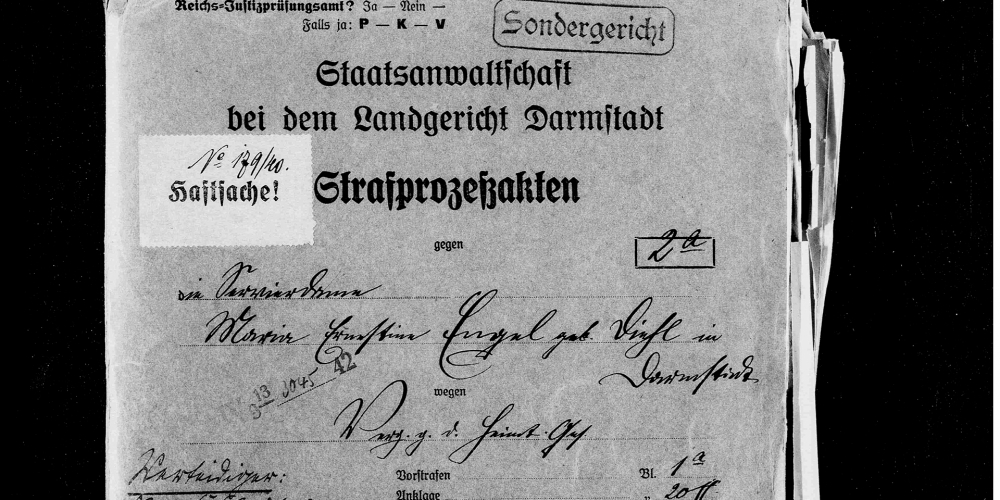 Reichs-Justizprüfungsamt? Ja — Nein —
Falls ja: P — K — V
Sondergericht
Staatsanwaltschaft
bei dem Landgericht Darmstadt
No 179/40.
Haftsache!
Strafprozeßakten
gegen
2a
die Servierdame
Maria Ernestine Engel geb. Diehl in
Darmstadt
13
42
wegen
Verg. g. d. Heimt. Ges.
Verteidiger:
Vorstrafen Bl. 1a
Anklage " 20 ff